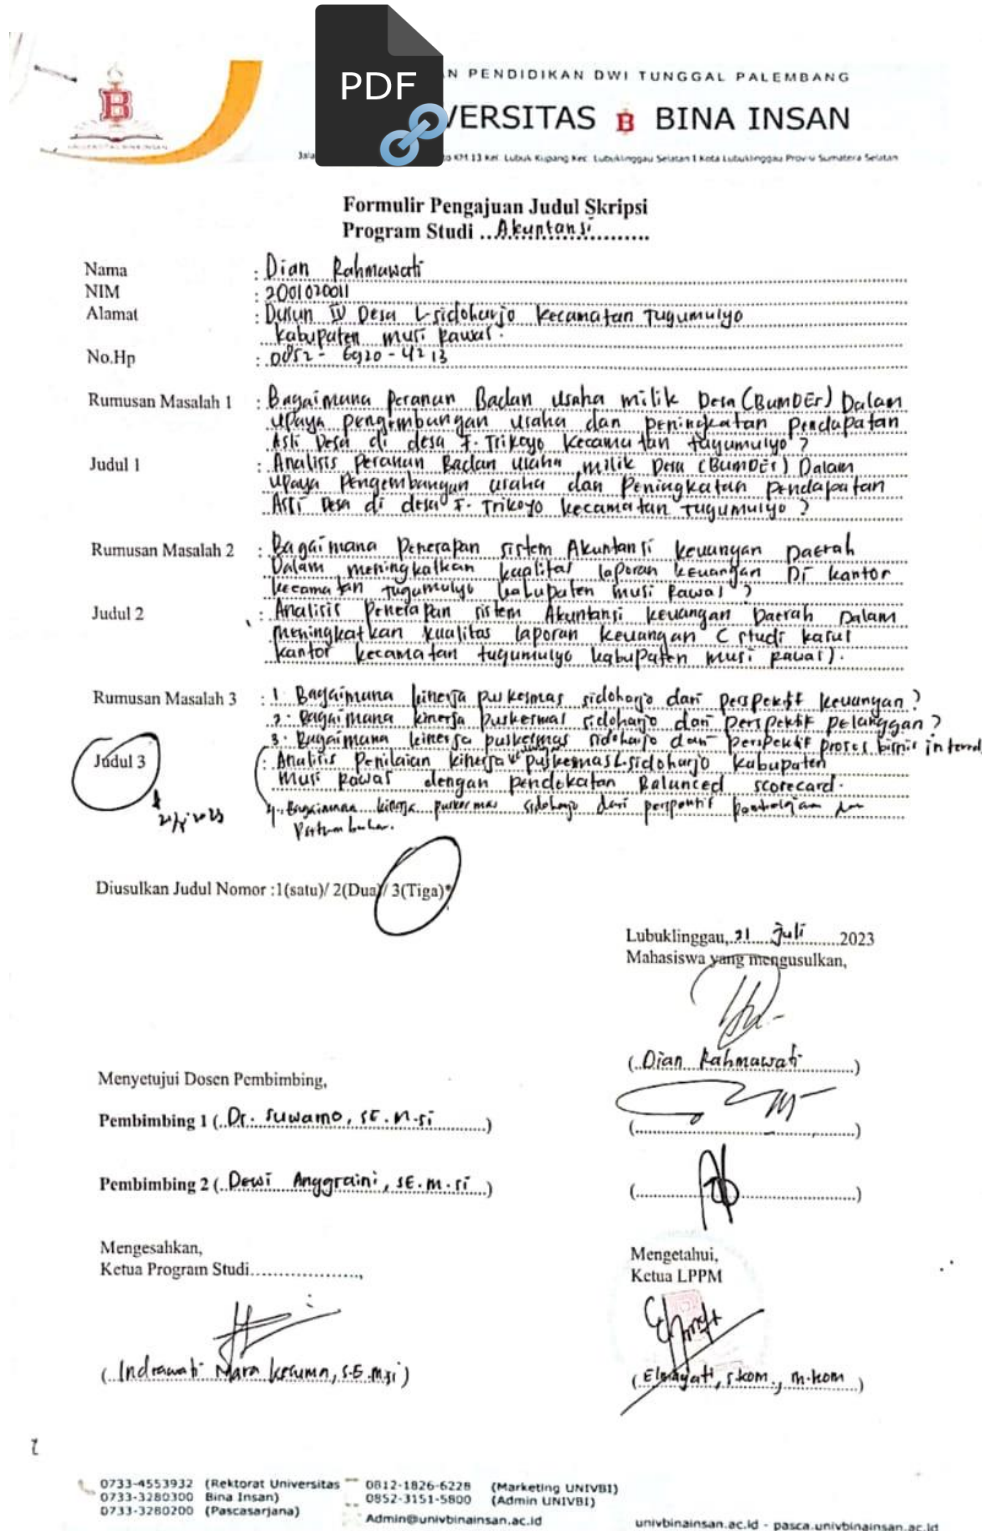 PDF
N PENDIDIKAN DWI TUNGGAL PALEMBANG
VERSITAS B BINA INSAN
KM 13 Kel. Lubuk Kupang Kec. Lubuklinggau Selatan I Kota Lubuklinggau Provisi Sumatera Selatan
Formulir Pengajuan Judul Skripsi
Program Studi ..Akuntansi..........
Nama : Dian Rahmawati
NIM : 2001020011
Alamat : Dusun IV Desa L-sidoharjo Kecamatan Tugumulyo
kabupaten musi Rawas.
No.Hp : 0852 - 6920 - 4213
Rumusan Masalah 1 : Bagaimana Peranan Badan usaha milik Desa (BumDEs) Dalam
upaya pengembangan usaha dan peningkatan Pendapatan
Asli Desa di desa F. Trikoyo Kecamatan tugumulyo ?
Judul 1 : Analisis Peranan Badan usaha milik Desa (BumDEs) Dalam
upaya Pengembangan usaha dan Peningkatan Pendapatan
Asli Desa di desa F. Trikoyo kecamatan tugumulyo ?
Rumusan Masalah 2 : Bagaimana Penerapan sistem Akuntansi keuangan Daerah
Dalam meningkatkan kualitas laporan keuangan Di kantor
kecamatan tugumulyo kabupaten musi Rawas ?
Judul 2 : Analisis Penerapan sistem Akuntansi keuangan Daerah Dalam
meningkatkan kualitas laporan keuangan ( studi kasus
kantor kecamatan tugumulyo kabupaten musi Rawas).
Rumusan Masalah 3 : 1. Bagaimana kinerja puskesmas sidoharjo dari perspektif keuangan ?
2. Bagaimana kinerja puskesmas sidoharjo dari perspektif pelanggan ?
3. Bagaimana kinerja puskesmas sidoharjo dari perspektif proses bisnis internal
Judul 3 : Analisis Penilaian kinerja puskesmas L.sidoharjo kabupaten
musi Rawas dengan pendekatan Balanced scorecard.
4. Bagaimana kinerja puskesmas sidoharjo dari perspektif pembelajaran dan
Pertumbuhan.
Diusulkan Judul Nomor :1(satu)/ 2(Dua)/ 3(Tiga)*
Lubuklinggau, 21 Juli 2023
Mahasiswa yang mengusulkan,
(..Dian Rahmawati..)
Menyetujui Dosen Pembimbing,
Pembimbing 1 (..Dr. Suwarno, SE.M.si..) (..............................)
Pembimbing 2 (..Dewi Anggraini, SE.M.si..) (..............................)
Mengesahkan,
Ketua Program Studi..................,
Mengetahui,
Ketua LPPM
(..Indrawati Mara Kesuma, S.E. M.si)
(Elmayati, s.kom., m.kom)
0733-4553932 (Rektorat Universitas
0733-3280300 Bina Insan)
0733-3280200 (Pascasarjana)
0812-1826-6228 (Marketing UNIVBI)
0852-3151-5800 (Admin UNIVBI)
Admin@univbinainsan.ac.id
univbinainsan.ac.id - pasca.univbinainsan.ac.id